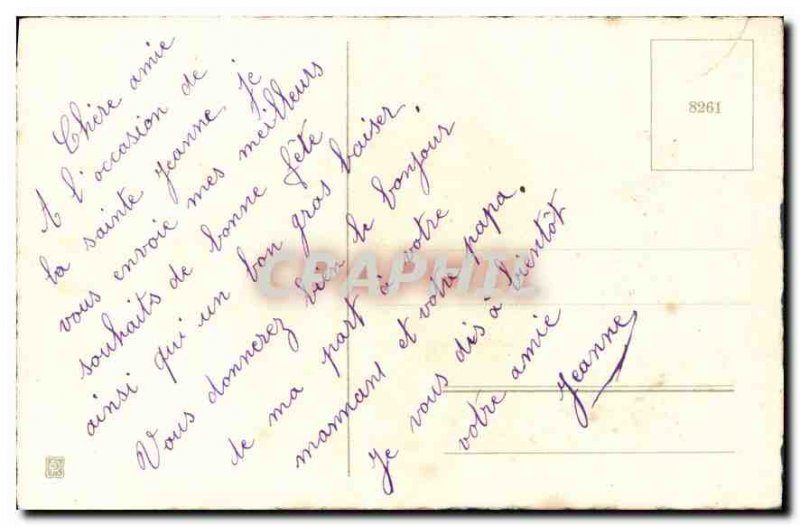 Chère amie
A l'occasion de
la sainte Jeanne, je
vous envoie mes meilleurs
souhaits de bonne fête
ainsi qui un bon gras baiser.
Vous donnerez bien le bonjour
de ma part à votre
mannant et votre papa.
Je vous dis à bientôt
votre amie
Jeanne
8261
CPAPHIL